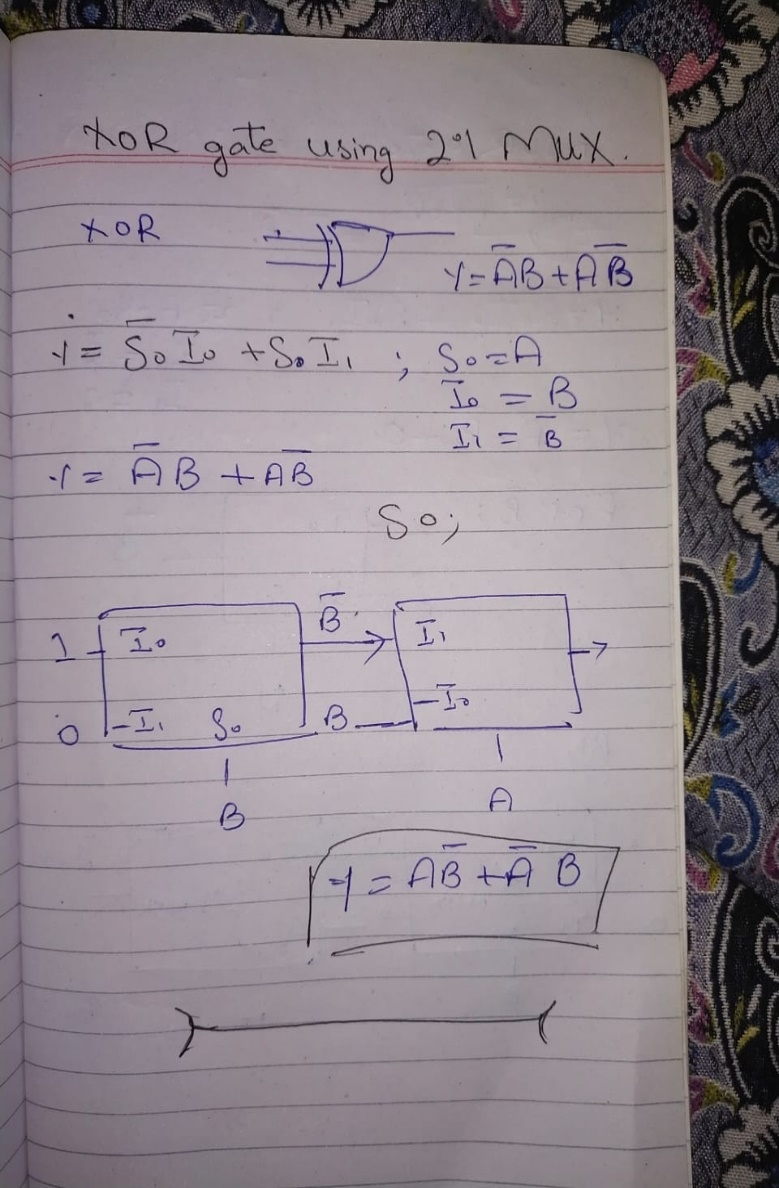 XOR gate using 2:1 MUX.
XOR
Y = A̅B + AB̅
Y = S̅₀I₀ + S₀I₁ ; S₀ = A
I₀ = B
I₁ = B̅
Y = A̅B + AB̅
So;
1 I₀ B̅ I₁
0 I₁ S₀ B I₀
B A
Y = AB̅ + A̅B